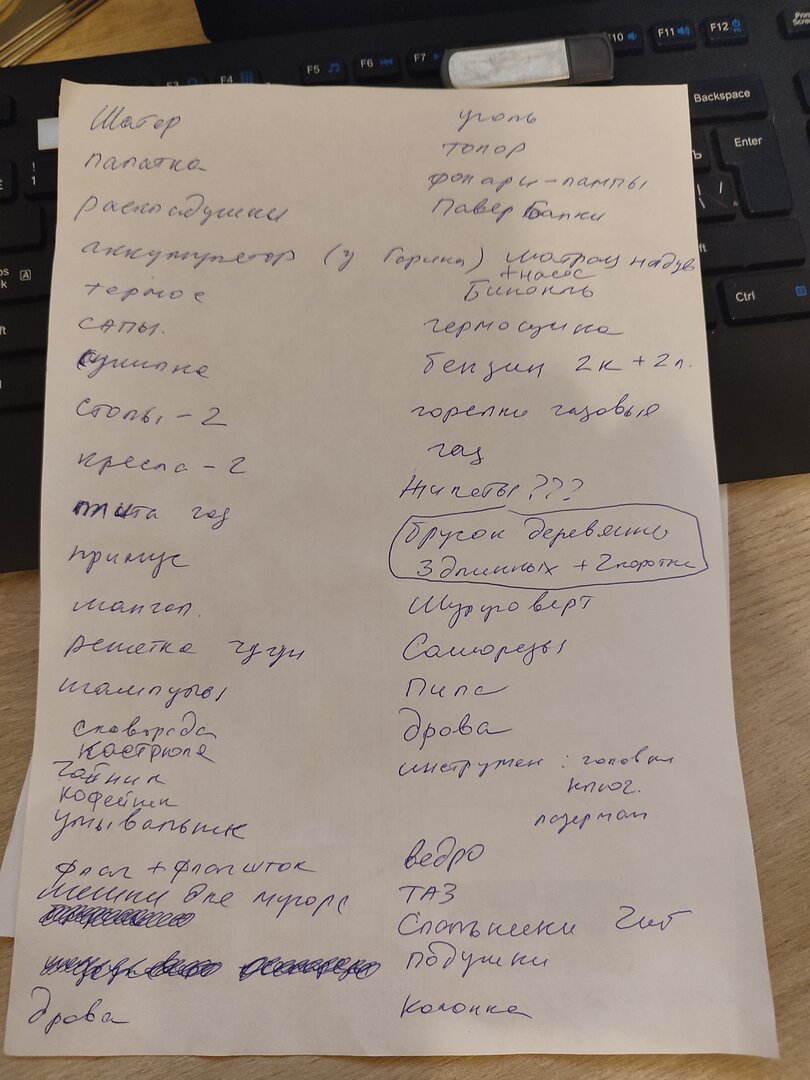 F5
F6
F7
F4
F3
F10
F11
F12
Backspace
Enter
Ctrl
Шатер
палатка
раскладушки
аккумулятор (у Гарика)
термос
САПЫ.
сушилка
столы - 2
кресла - 2
плита газ
примус
мангал.
решетка чугун
шампуры
сковорода
кастрюля
чайник
кофейник
умывальник
флаг + флагшток
мешки для мусора
дрова
уголь
топор
фонари - лампы
Павер банки
матрац надув
+ насос
Бинокль
термосумка
бензин 2к + 2л.
горелки газовые
газ
жилеты ???
брусок деревянн
3 длинных + 2 коротк
Шуруповерт
Саморезы
Пила
дрова
инструмен : головки
ключ.
лазерман
ведро
ТАЗ
Спальники 2шт
подушки
колонка